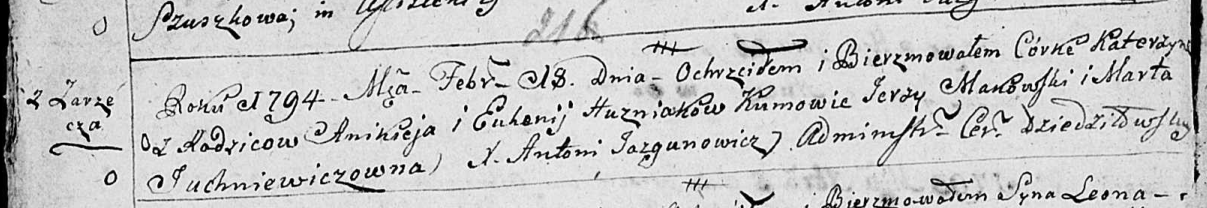 Szuszkowaj in
X. Antoni
216
z Zarzé
cza
Roku 1794 Mca Febr. 18. Dnia Ochrzciłem i Bierzmowałem Córkę Katerzynę
z Rodzicow Anikieja i Eukenij Huzniaków Kumowie Jerzy Makowski i Marta
Juchniewiczowna) X. Antoni Jazgunowicz Adminstr. Cer. Dziedziłowskiy
0
i Bierzmowałem Syna Leona